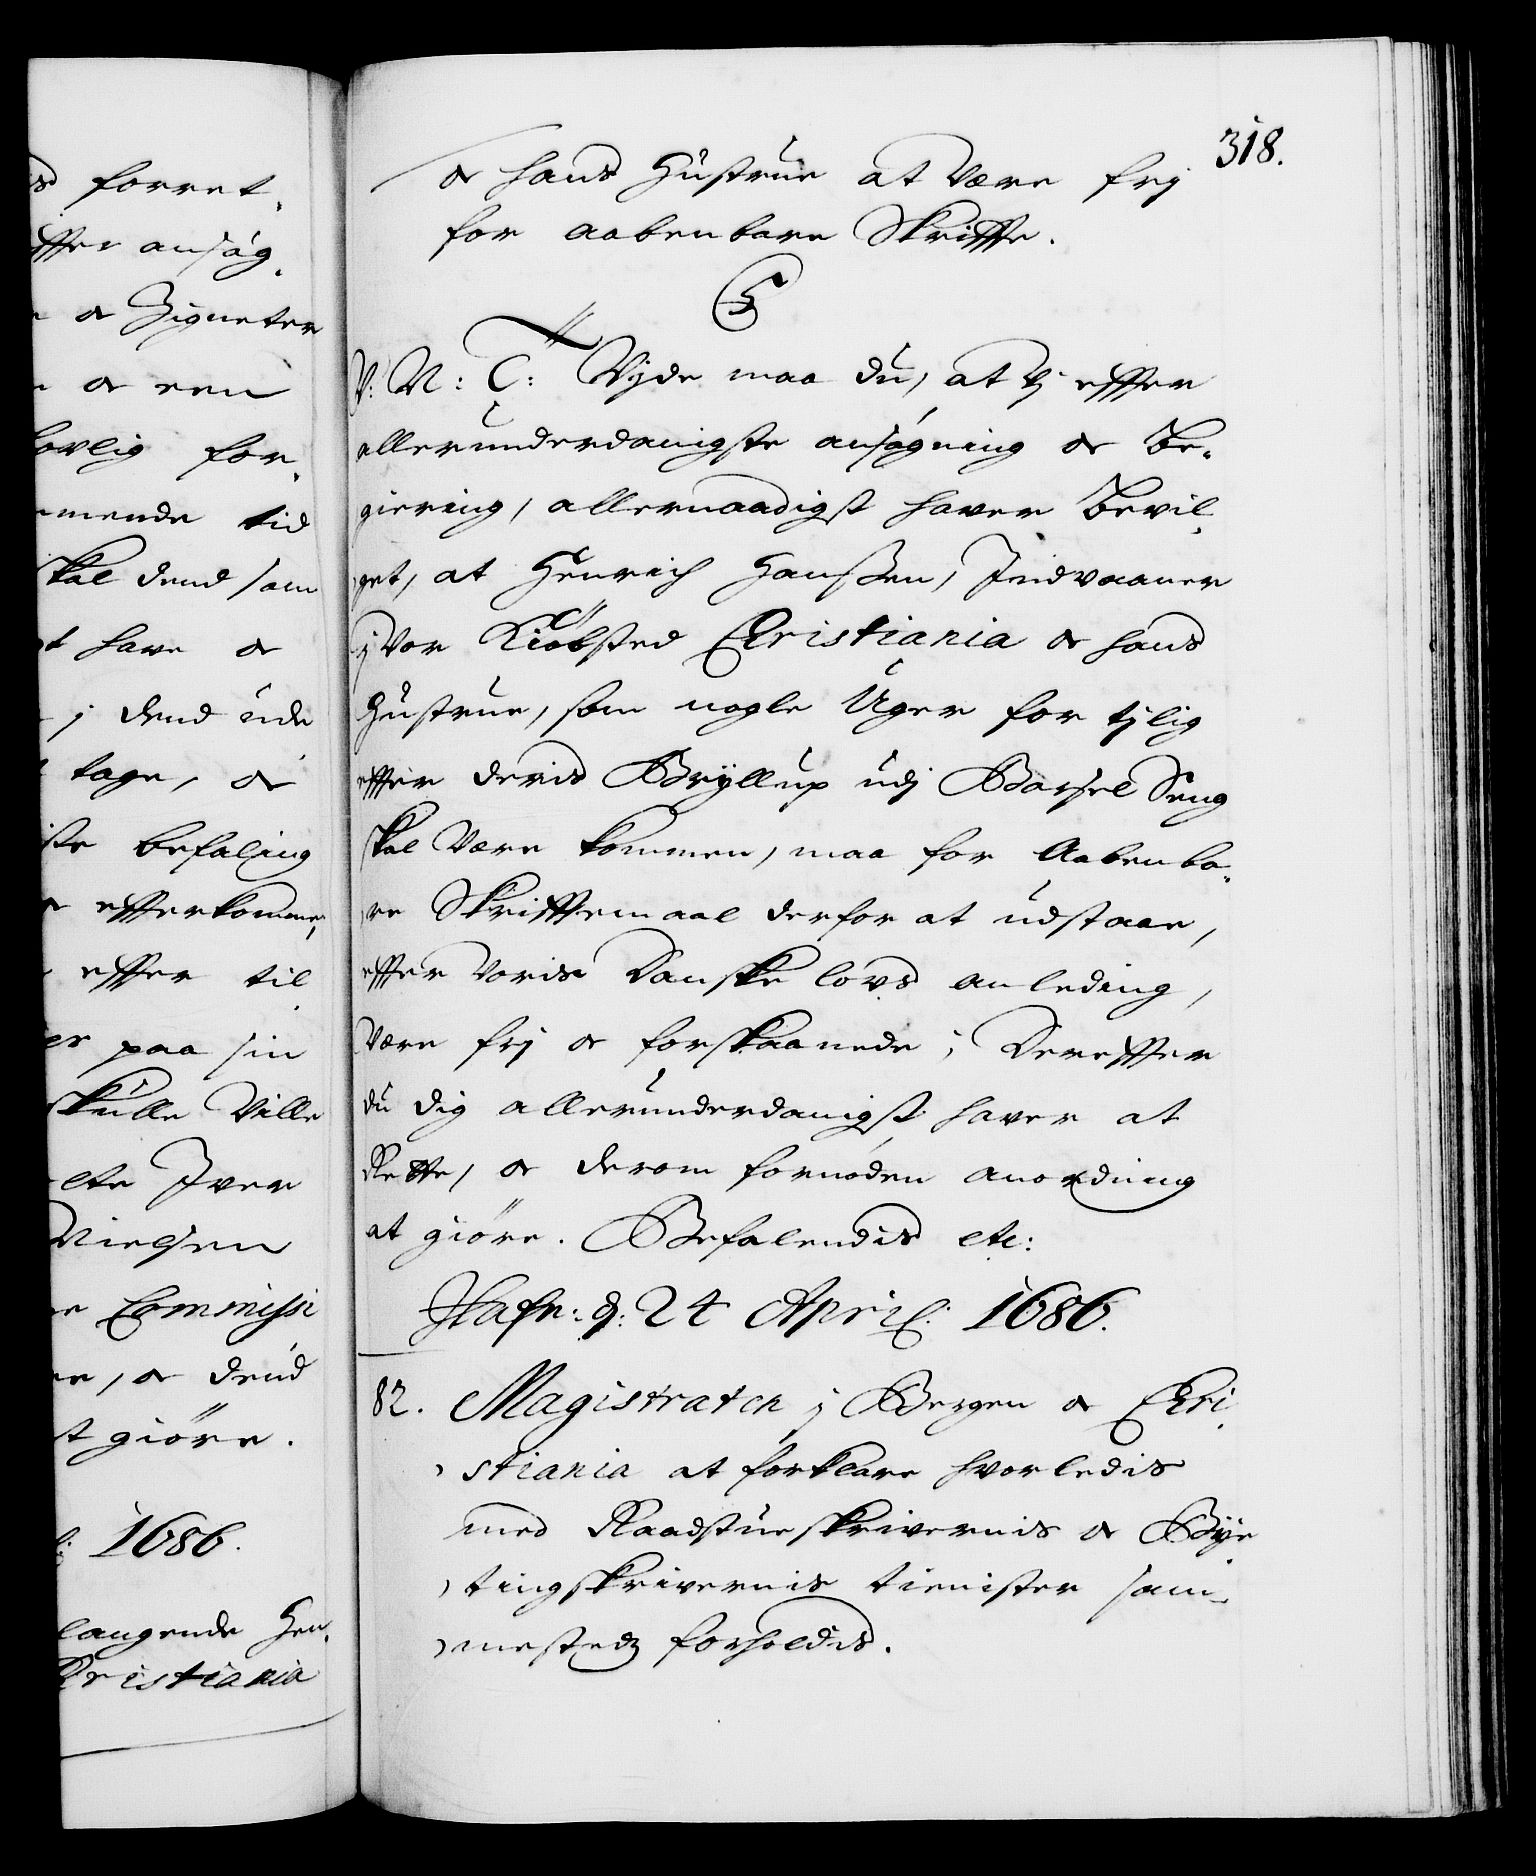 ds forret,
effter ansøg,
& Zigneter
& een
lovlig for,
mmende tid
skal dend som
have &
j dend ude
tage, &
ste befaling
& effterkomme,
effter til
paa sin
skulle Ville
Iver
Nielsen
Commissi
, & dend
giøre.
1686.
langende Hen,
Christiania
318.
& hans Hustrue at Være frj
for aabenbare Skriffte.
C5
V: N: T: Vide maa du, at Vj effter
allerunderdanigste ansøgning & Be,
giering, allernaadigst haver Bevil,
get, at Henrich Hanßen, Indvaaner
j Vor Kiøbsted Christiania & hans
Hustrue, som nogle Uger for tjlig
effter deris Bryllup udj Barsel Seng
skal Være kommen, maa for Aabenba,
re Skrifftemaal derfor at udstaae,
effter Voris Danske lovs anleding,
Være frj & forskaanede; Dereffter
du dig allerunderdanigst haver at
Rette, & derom fornøden anordning
at giøre. Befalendis etc:
Hafn: d: 24 April: 1686.
82. Magistraten j Bergen & Chri,
stiania at forklare hvorledis
med Raadstueskrivernis & Bÿe
tingskrivernis tienister sam,
mestedz forholdis.